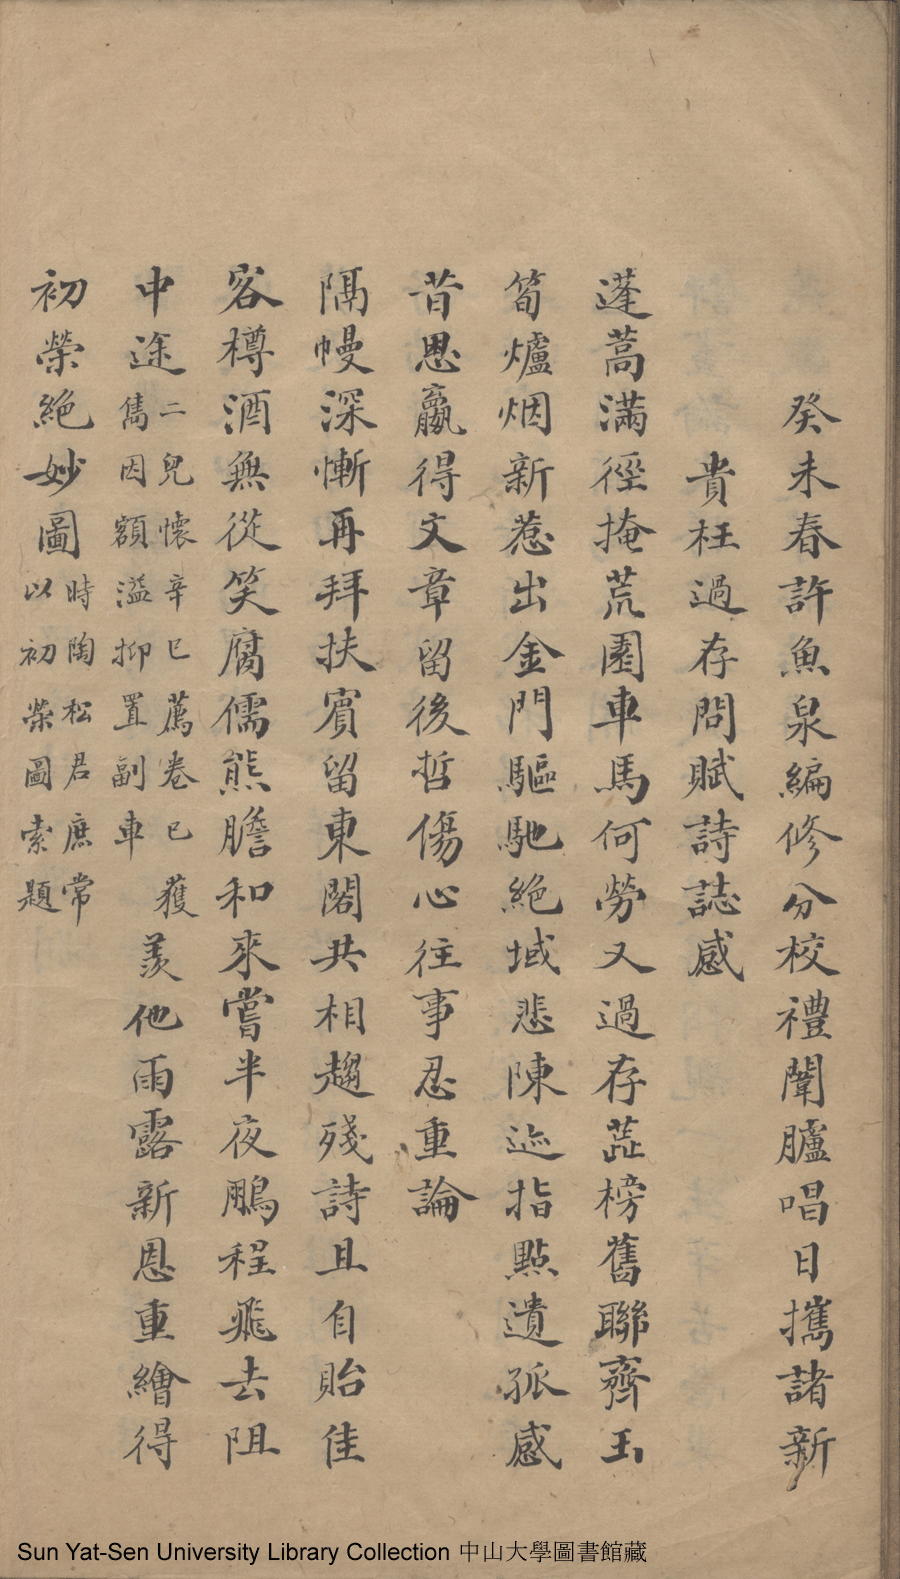 癸未春許魚泉編修分校禮闈臚唱日攜諸新
貴枉過存問賦詩誌感
蓬蒿滿徑掩荒園車馬何勞又過存蕋榜舊聯齊玉
筍爐烟新惹出金門驅馳絕域悲陳迹指點遺孤感
昔恩贏得文章留後哲傷心往事忍重論
隔幔深慚再拜扶賓留東閣共相趨殘詩且自貽佳
客樽酒無從笑腐儒熊膽和來嘗半夜鵬程飛去阻
中途二兒懷辛巳薦卷已獲
雋因額溢抑置副車
羨他雨露新恩重繪得
初榮絕妙圖時陶松君庶常
以初榮圖索題
Sun Yat-Sen University Library Collection 中山大學圖書館藏